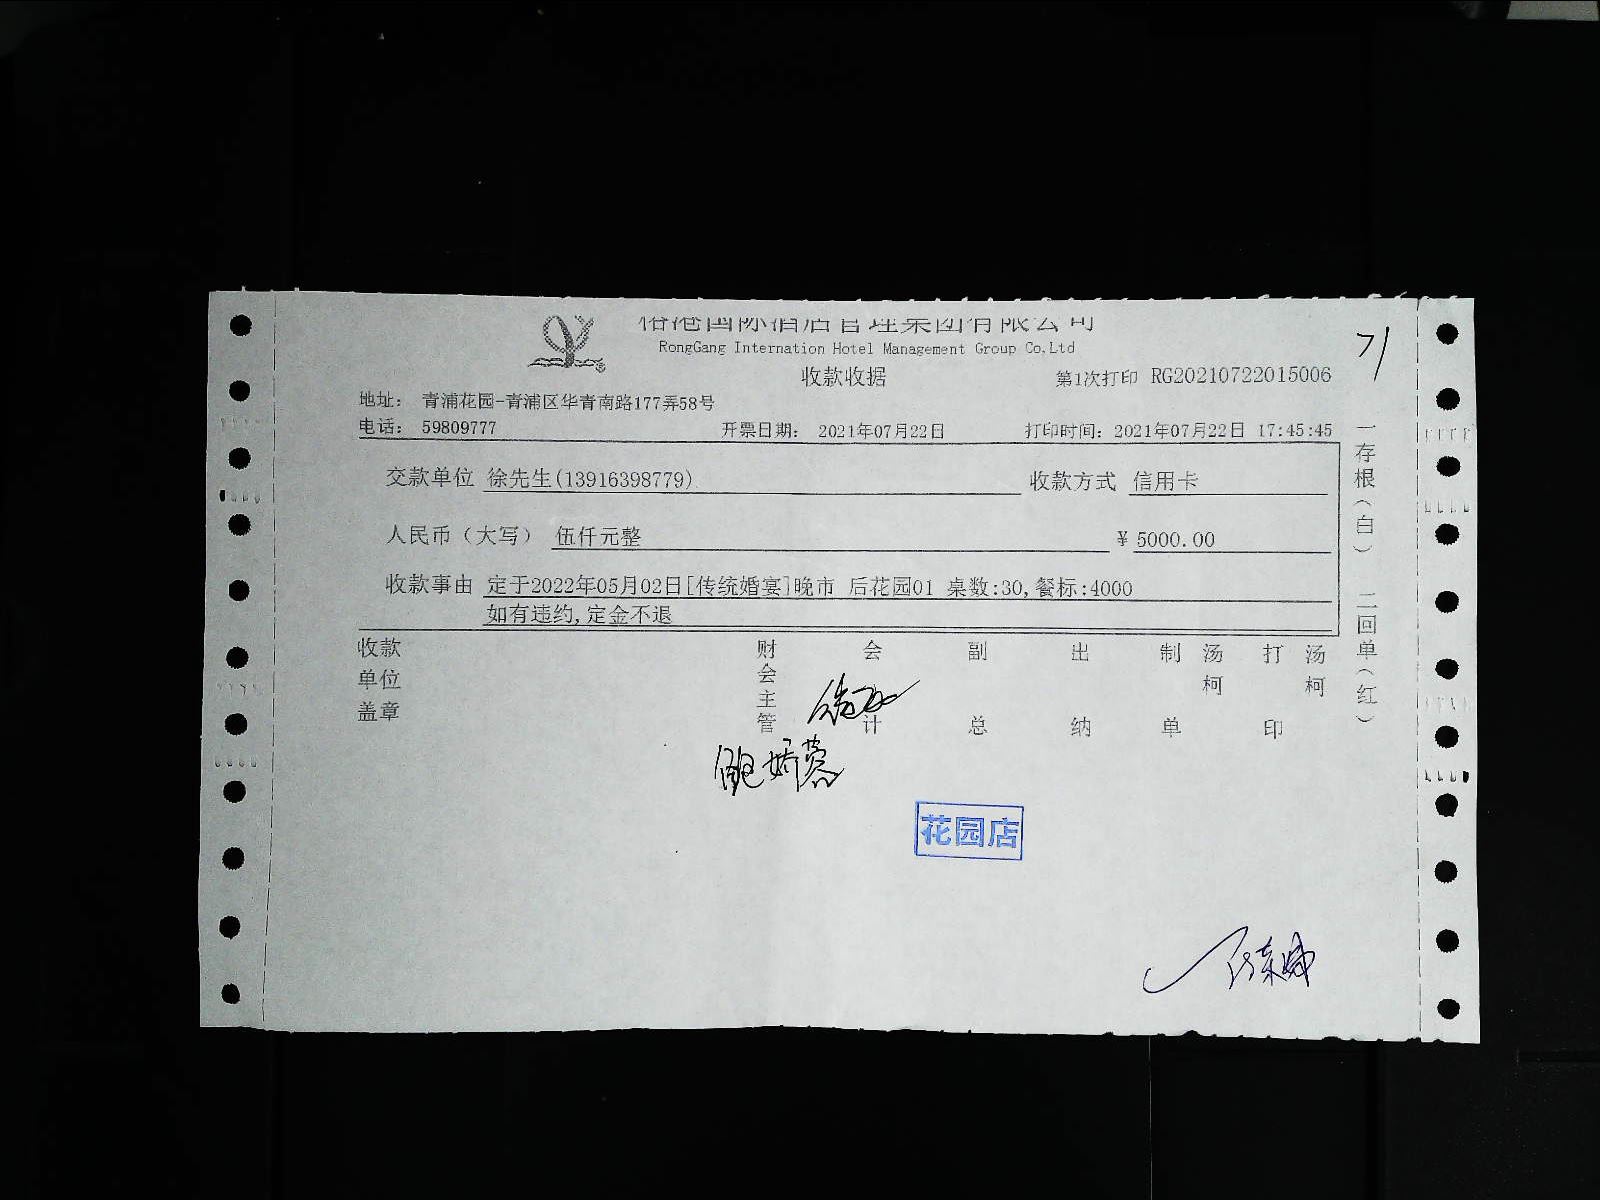 榕港国际酒店管理集团有限公司
RongGang Internation Hotel Management Group Co.Ltd
收款收据
第1次打印 RG20210722015006
71
地址： 青浦花园-青浦区华青南路177弄58号
电话： 59809777 开票日期： 2021年07月22日 打印时间：2021年07月22日 17:45:45
交款单位 徐先生(13916398779) 收款方式 信用卡
人民币（大写） 伍仟元整 ¥ 5000.00
收款事由 定于2022年05月02日[传统婚宴]晚市 后花园01 桌数:30,餐标:4000
如有违约,定金不退
收款单位盖章 财会主管 会计 副总 出纳 制单 汤柯 打印 汤柯
一存根（白） 二回单（红）
花园店